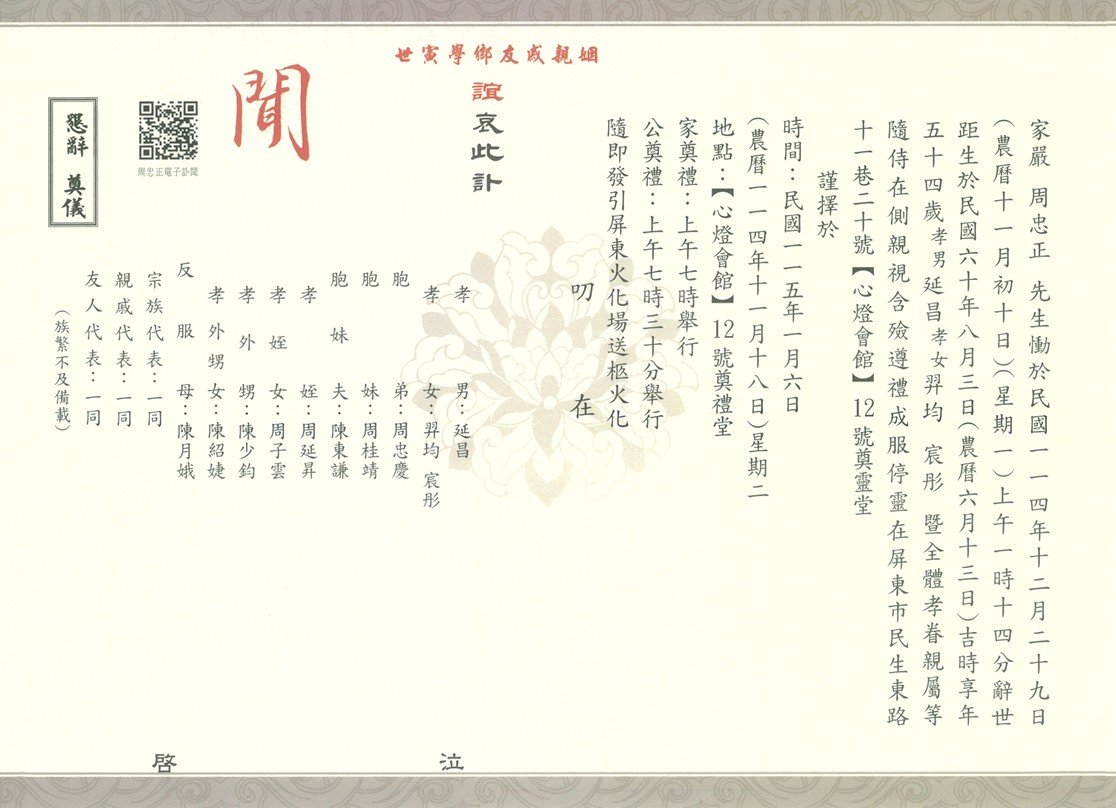 家嚴 周忠正 先生慟於民國一一四年十二月二十九日
(農曆十一月初十日)(星期一)上午一時十四分辭世
距生於民國六十年八月三日(農曆六月十三日)吉時享年
五十四歲孝男延昌孝女羿均 宸彤 暨全體孝眷親屬等
隨侍在側親視含殮遵禮成服停靈在屏東市民生東路
十一巷二十號【心燈會館】12號奠靈堂
謹擇於
時間：民國一一五年一月六日
(農曆一一四年十一月十八日)星期二
地點：【心燈會館】12號奠禮堂
家奠禮：上午七時舉行
公奠禮：上午七時三十分舉行
隨即發引屏東火化場送柩火化
叨 在
姻親戚友鄉學寅世
誼哀此訃
聞
孝 男：延昌
孝 女：羿均 宸彤
胞 弟：周忠慶
胞 妹：周桂靖
胞妹夫：陳東謙
孝 姪：周延昇
孝姪女：周子雲
孝外甥：陳少鈞
孝外甥女：陳紹婕
反服母：陳月娥
宗族代表：一同
親戚代表：一同
友人代表：一同
(族繁不及備載)
泣 啓
周忠正電子訃聞
懇辭 奠儀